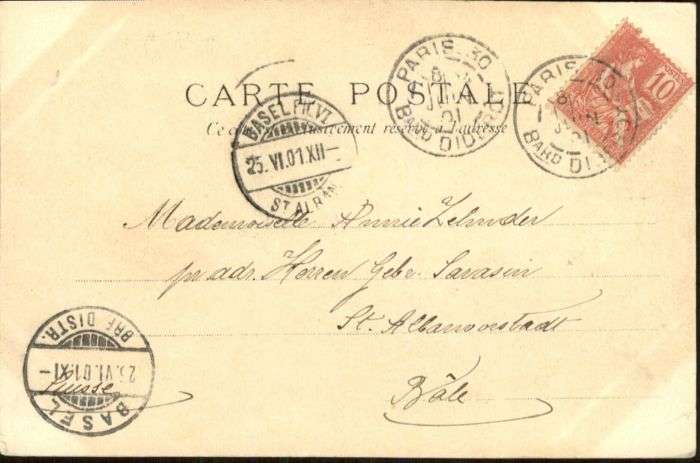 PARIS 30
BARD DIDEROT
PARIS 30
BARD DIDEROT
10
CARTE POSTALE
Ce côté exclusivement réservé à l'adresse
BASEL FIL. VI.
25.VI.01.XII-
ST ALBAN
Mademoiselle Annie Zehnder
pr adr. Herren Gebr. Sarasin
St. Albanvorstadt
Bâle
Suisse
BASEL
25.VI.01.XI-
BRF. DISTR.